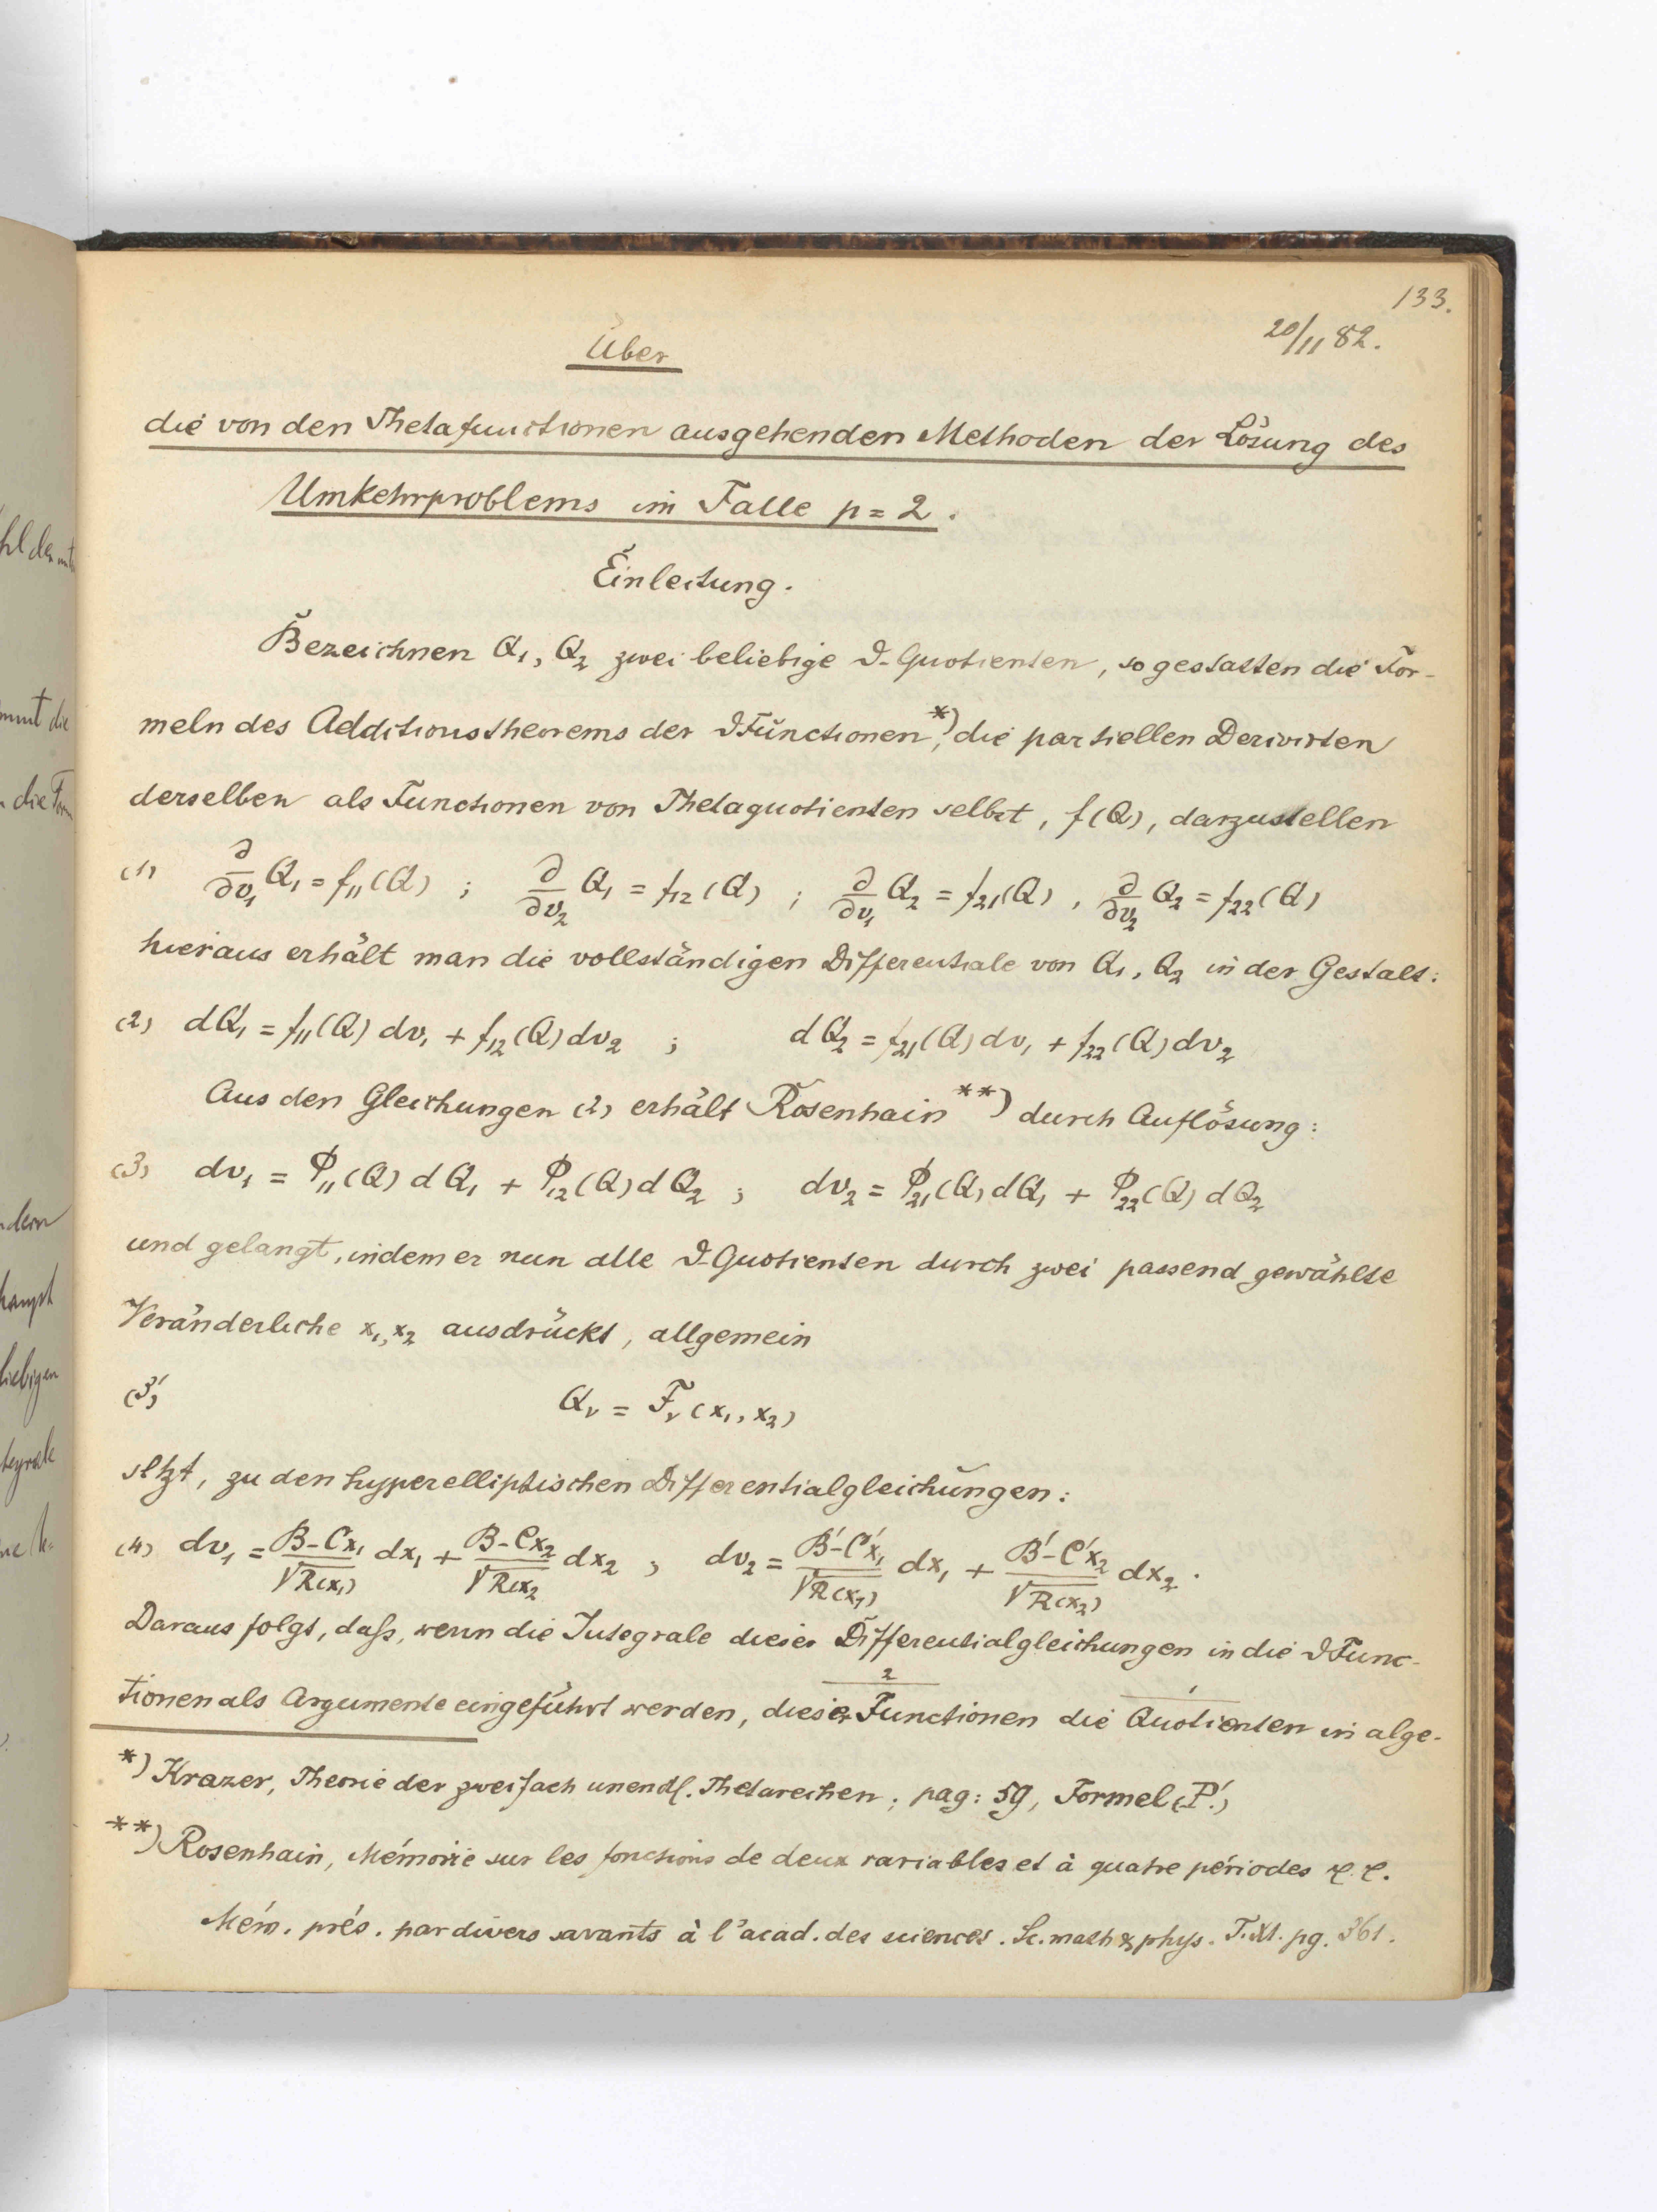 133.
20/11 82.
Über
die von den Thetafunctionen ausgehenden Methoden der Lösung des
Umkehrproblems im Falle p = 2.
Einleitung.
Bezeichnen Q₁, Q₂ zwei beliebige ϑ-Quotienten, so gestatten die For-
meln des Additionstheorems der ϑFunctionen*), die partiellen Derivirten
derselben als Functionen von Thetaquotienten selbst, f(Q), darzustellen
(1) ∂/∂v₁ Q₁ = f₁₁(Q) ; ∂/∂v₂ Q₁ = f₁₂(Q) ; ∂/∂v₁ Q₂ = f₂₁(Q) , ∂/∂v₂ Q₂ = f₂₂(Q)
hieraus erhält man die vollständigen Differentiale von Q₁, Q₂ in der Gestalt:
(2) dQ₁ = f₁₁(Q) dv₁ + f₁₂(Q) dv₂ ; dQ₂ = f₂₁(Q) dv₁ + f₂₂(Q) dv₂
Aus den Gleichungen (2) erhält Rosenhain**) durch Auflösung:
(3) dv₁ = φ₁₁(Q) dQ₁ + φ₁₂(Q) dQ₂ ; dv₂ = φ₂₁(Q) dQ₁ + φ₂₂(Q) dQ₂
und gelangt, indem er nun alle ϑ-Quotienten durch zwei passend gewählte
Veränderliche x₁, x₂ ausdrückt, allgemein
(3') Qᵥ = Fᵥ(x₁, x₂)
setzt, zu den hyperelliptischen Differentialgleichungen:
(4) dv₁ = B-Cx₁/√R(x₁) dx₁ + B-Cx₂/√R(x₂ dx₂ ; dv₂ = B'-C'x₁/√R(x₁) dx₁ + B'-C'x₂/√R(x₂) dx₂.
Daraus folgt, daſs, wenn die Integrale dieser Differentialgleichungen in die ϑFunc-
tionen als Argumente eingeführt werden, dieser Functionen die Quotienten in alge-
2 1
*) Krazer, Theorie der zweifach unendl. Thetareihen; pag: 59, Formel (P'.)
**) Rosenhain, Mémoire sur les fonctions de deux variables et à quatre périodes etc.
Mém. prés. par divers savants à l'acad. des sciences. Sc. math & phys. T. XI. pg. 361.